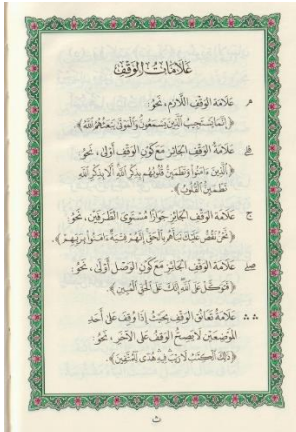 عَلَامَاتُ الوَقْفِ
مـ عَلَامَةُ الوَقْفِ اللَّازِمِ، نَحْوُ:
﴿ إِنَّمَا يَسْتَجِيبُ ٱلَّذِينَ يَسْمَعُونَۘ وَٱلْمَوْتَىٰ يَبْعَثُهُمُ ٱللَّهُ ﴾.
قلى عَلَامَةُ الوَقْفِ الجَائِزِ مَعَ كَوْنِ الوَقْفِ أَوْلَىٰ، نَحْوُ:
﴿ ٱلَّذِينَ ءَامَنُوا۟ وَتَطْمَئِنُّ قُلُوبُهُم بِذِكْرِ ٱللَّهِۗ أَلَا بِذِكْرِ ٱللَّهِ
تَطْمَئِنُّ ٱلْقُلُوبُ ﴾.
ج عَلَامَةُ الوَقْفِ الجَائِزِ جَوَازًا مُسْتَوِيَ الطَّرَفَيْنِ، نَحْوُ:
﴿ نَّحْنُ نَقُصُّ عَلَيْكَ نَبَأَهُم بِٱلْحَقِّۚ إِنَّهُمْ فِتْيَةٌ ءَامَنُوا۟ بِرَبِّهِمْ ﴾.
صلى عَلَامَةُ الوَقْفِ الجَائِزِ مَعَ كَوْنِ الوَصْلِ أَوْلَىٰ، نَحْوُ:
﴿ فَتَوَكَّلْ عَلَى ٱللَّهِۖ إِنَّكَ عَلَى ٱلْحَقِّ ٱلْمُبِينِ ﴾.
∴ ∴ عَلَامَةُ تَعَانُقِ الوَقْفِ بِحَيْثُ إِذَا وُقِفَ عَلَىٰ أَحَدِ
المَوْضِعَيْنِ لَا يَصِحُّ الوَقْفُ عَلَى الآخَرِ، نَحْوُ:
﴿ ذَٰلِكَ ٱلْكِتَٰبُ لَا رَيْبَۛ فِيهِۛ هُدًى لِّلْمُتَّقِينَ ﴾.
ث